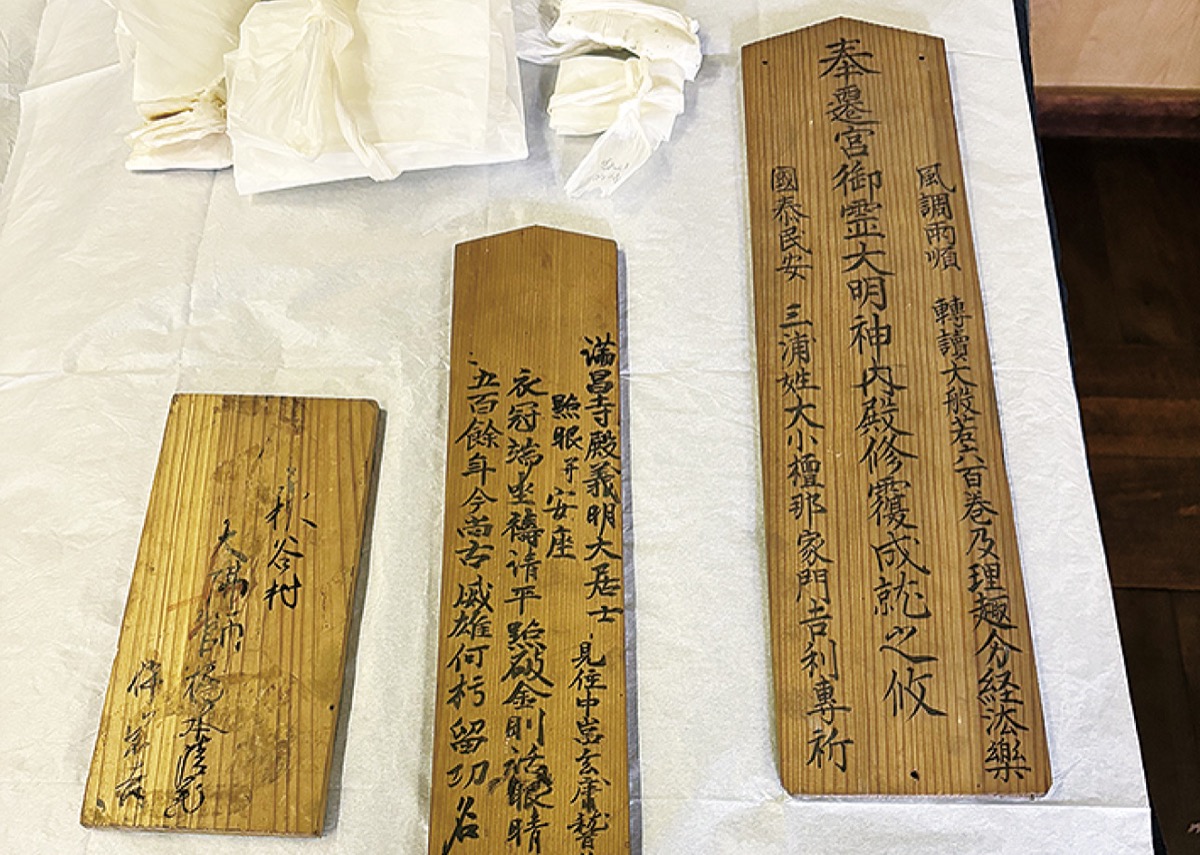 風調雨順 轉讀大般若六百巻及理趣分経法樂
奉遷宮御霊大明神内殿修覆成就之攸
國泰民安 三浦姓大小檀那家門吉利專祈
満昌寺殿義明大居士 見住中
點眼并安座
衣冠端坐禱請平 點破金剛活眼睛
五百餘年今尚古 威雄何朽留功名
秋谷村
大佛師